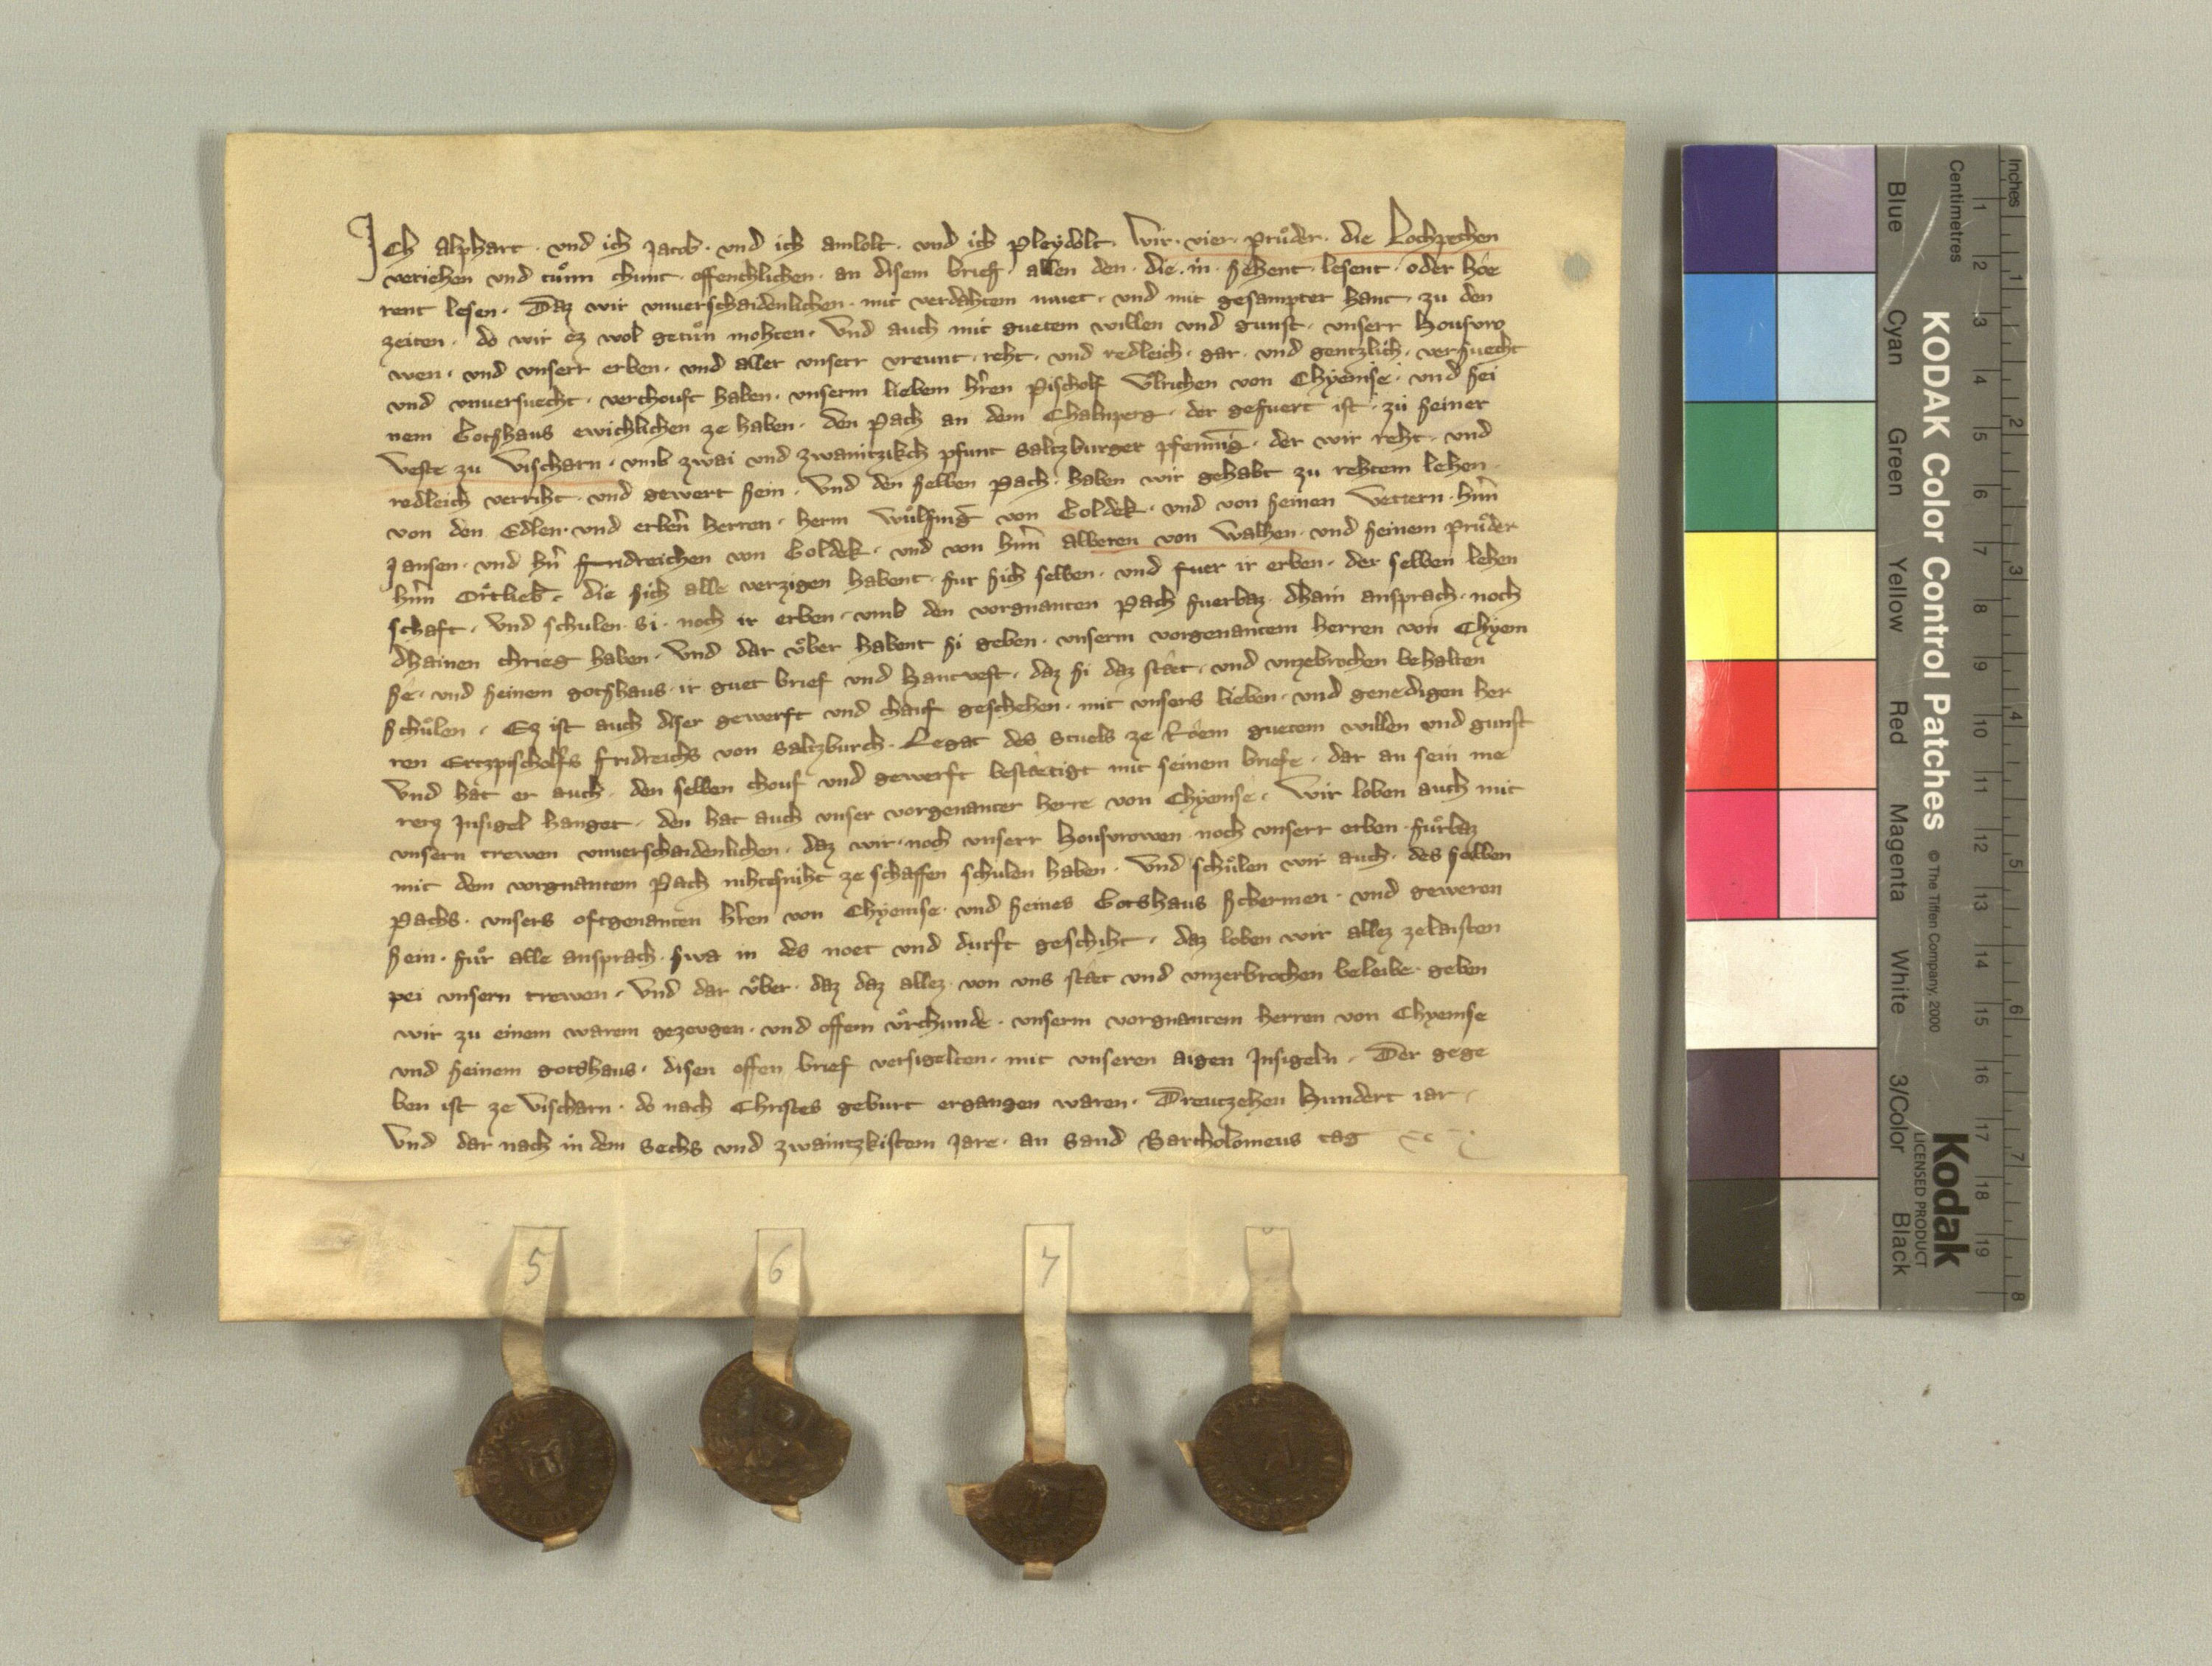 Ich Alphart · und ich Jacob · und ich amlolt · und ich Pleydolt · Wir · vier · pruͦder · die Lochpechen
veriehen und tuͦnn chunt · offenchlichen · an disem brief · allen den · die · in · sehent · lesent · oder hoͤe
rent lesen · Daz wir unverschaidenlichen · mit verdahtem muet · und mit gesampter hant · zu den
zeiten · do wir ez wol getuͦn mohten · Und auch mit guetem willen und gunst · unserr housvro
wen · und unserr erben · und aller unserr vreunt · reht · und redleich · gar · und gentzlich · versuecht
und unversuecht · verchouft haben · unserm liebem hren Pischolf Ulrichen von Chyemse · und sei
nem Gotshaus ewichlichen ze haben · den Pach an dem Chalnperg · der gefuert ist · zu seiner
veste zu Vischarn · umb zwai und zwaintzikch pfunt Saltzburger pfenning · der wir reht · und
redleich verriht · und gewert sein · Und den selben Pach · haben wir gehabt zu rehtem lehen
von den Edlen · und erbern herren · herrn Wuͤlfing von Goldek · und von seinen vettern · hern
Jansen · und hern fridreichen von Goldek · und von hern alberen von Walhen · und seinem pruͦder
hern Ortlieb · die sich alle verzigen habent · fur sich selben · und fuer ir erben · der selben lehen
schaft · Und schulen · si · noch ir erben · umb den vorgnanten Pach fuerbaz · dhain ansprach · noch
dhainen chrieg haben · Und dar uͤber habent si geben · unserm vorgenantem herren von Chyem
se · und seinem gotshaus · ir guet brief und hantvest · daz si daz staet · und unzebrochen behalten
schuͤlen · Ez ist auch diser gewerft und chauf geschehen · mit unsers lieben · und genedigen her
ren Ertzpischolfs fridreichs von Saltzburch · Legat des Stuels ze Roem guetem willen und gunst
Und hat er auch · den selben chouf und gewerft bestaetigt mit seinem briefe · dar an sein me
rerz Insigel hanget · den hat auch unser vorgenanter herre von Chyemse · Wir loben auch mit
unsern trewen unverschaidenlichen · daz wir · noch unserr housvrowen noch unserr erben · fuͤrbaz
mit dem vorgnantem Pach nihtsniht ze schaffen schulen haben · Und schuͤlen wir auch · des selben
Pachs · unsers oftgenanten hren von Chyemse · und seines Gotshaus schermen · und geweren
sein · fuͤr alle ansprach · swa in des noet und durft geschiht · daz loben wir allez zelaisten
pei unsern trewen · Und dar uͤber · daz daz allez · von uns staet und unzerbrochen beleibe · geben
wir zu einem warem gezeugen · und offem uͤrchunde · unserm vorgnantem herren von Chyemse
und seinem gotshaus · disen offen brief versigelten · mit unseren aigen Insigeln · Der gege
ben ist ze Vischarn · do nach Christes geburt ergangen waren · Dreutzehen hundert iar ·
Und dar nach in dem Sechs und zwaintzkistem Jare · an sand Bartholomeus tag
5 6 7
KODAK Color Control Patches © The Tiffen Company, 2000
Kodak
LICENSED PRODUCT
Inches 1 2 3 4 5 6 7 8
Centimetres 1 2 3 4 5 6 7 8 9 10 11 12 13 14 15 16 17 18 19
Blue Cyan Green Yellow Red Magenta White 3/Color Black